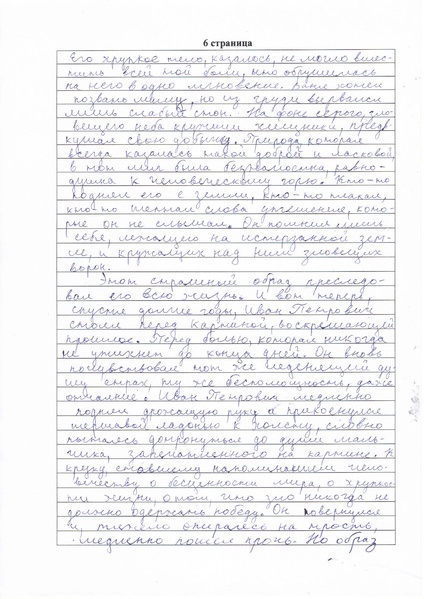 6 страница
Его хрупкое тело, казалось, не могло вмес-
тить всей той боли, что обрушилась
на него в одно мгновение. Ваня хотел
позвать маму, но из груди вырвался
лишь слабый стон. На фоне серого, зло-
вещего неба кружили хищники, предв-
кушая свою добычу. Природа, которая
всегда казалась такой доброй и ласковой,
в тот миг была безжалостна, равно-
душна к человеческому горю. Кто-то
поднял его с земли, кто-то плакал,
кто-то шептал слова утешения, кото-
рые он не слышал. Он помнил лишь
себя, лежащего на истерзанной зем-
ле, и кружащих над ним зловещих
ворон.
Этот страшный образ преследо-
вал его всю жизнь. И вот теперь,
спустя долгие годы, Иван Петрович
стоял перед картиной, воскрешающей
прошлое. Перед болью, которая никогда
не утихнет до конца дней. Он вновь
почувствовал тот же леденящий ду-
шу страх, ту же беспомощность, даже
отчаяние. Иван Петрович медленно
поднял дрожащую руку и прикоснулся
шершавой ладонью к холсту, словно
пытаясь дотронуться до души маль-
чика, запечатленного на картине. К
крику, ставшему напоминанием чело-
вечеству о бесценности мира, о хрупкос-
ти жизни, о том, что зло никогда не
должно одержать победу. Он повернулся
и, тяжело опираясь на трость,
медленно пошел прочь. Но образ